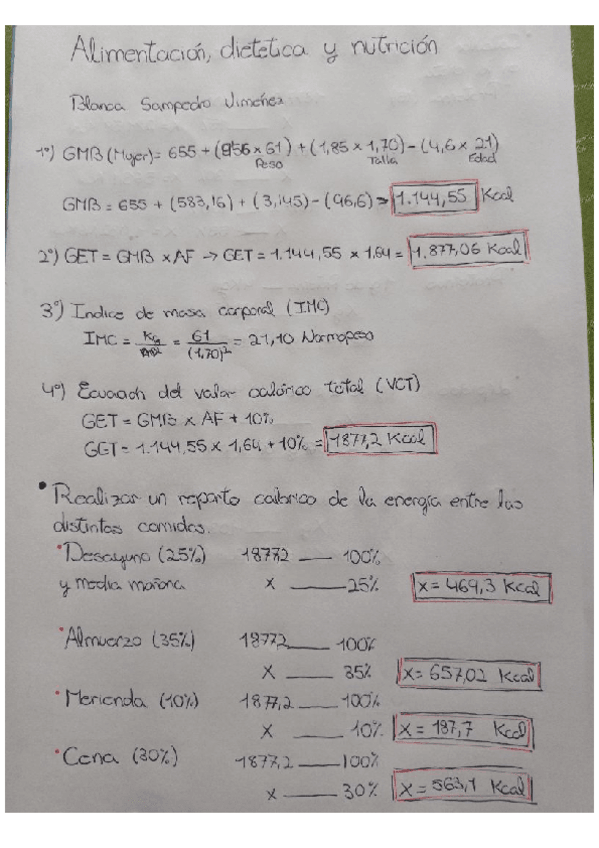 Alimentación, dietetica y nutrición
Blanca Sampedro Jiménez
1º) GMB (Mujer) = 655 + (9,56 x 61) + (1,85 x 1,70) - (4,6 x 21)
Peso Talla Edad
GMB = 655 + (583,16) + (3,145) - (96,6) => 1.144,55 Kcal
2º) GET = GMB x AF → GET = 1.144,55 x 1,64 = 1.877,06 Kcal
3º) Indice de masa corporal (IMC)
IMC = Kg / m2 = 61 / (1,70)² = 21,10 Normopeso
4º) Ecuación del valor calórico total (VCT)
GET = GMB x AF + 10%
GET = 1.144,55 x 1,64 + 10% = 1877,2 Kcal
• Realizar un reparto calórico de la energía entre las
distintas comidas.
• Desayuno (25%) 1877,2 —— 100%
y media mañana x —— 25% x = 469,3 Kcal
• Almuerzo (35%) 1877,2 —— 100%
x —— 35% x = 657,02 Kcal
• Merienda (10%) 1877,2 —— 100%
x —— 10% x = 187,7 Kcal
• Cena (30%) 1877,2 —— 100%
x —— 30% x = 563,1 Kcal